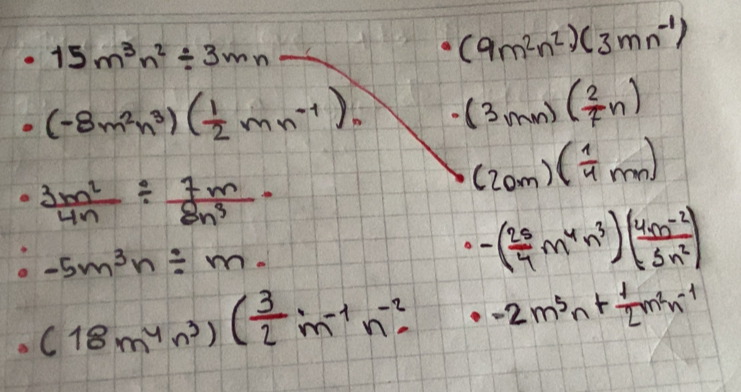 • 15m³n² ÷ 3mn
• (-8m²n³)(1/2 mn⁻¹).
• 3m²/4n ÷ 7m/8n³ •
• -5m³n ÷ m.
• (18m⁴n³)(3/2 m⁻¹n⁻².
• (9m²n²)(3mn⁻¹)
• (3mn)(2/7 n)
• (20m)(1/4 mn)
• -(25/4 m⁴n³)(4m⁻²/5n²)
• -2m⁵n + 1/2 m²n⁻¹